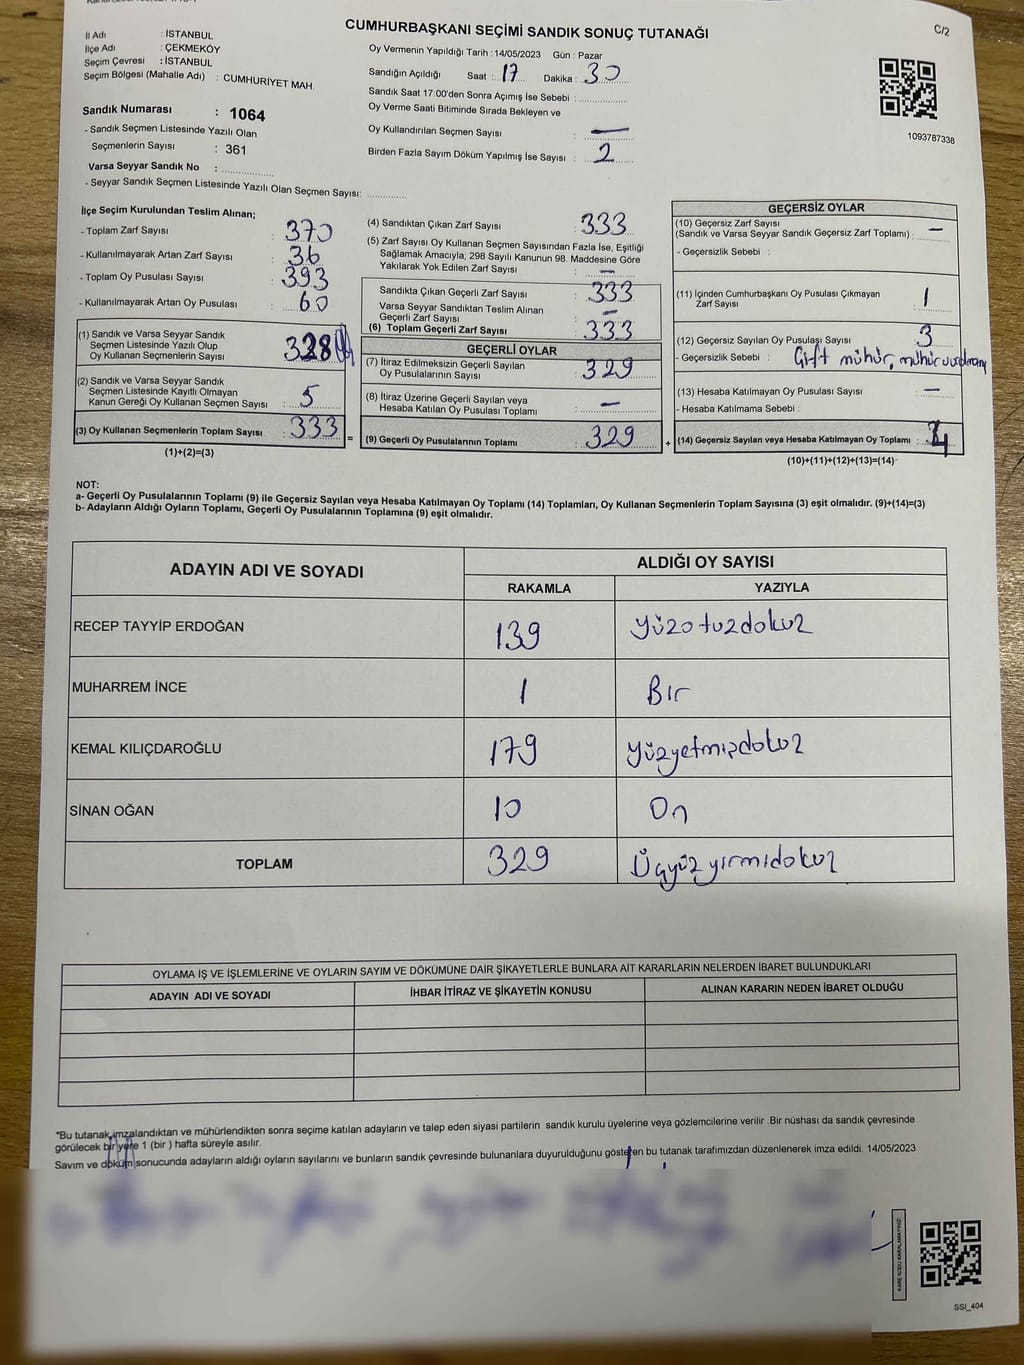 CUMHURBAŞKANI SEÇİMİ SANDIK SONUÇ TUTANAĞI
C/2
İl Adı : İSTANBUL
İlçe Adı : ÇEKMEKÖY
Seçim Çevresi : İSTANBUL
Seçim Bölgesi (Mahalle Adı) : CUMHURİYET MAH.
Sandık Numarası : 1064
- Sandık Seçmen Listesinde Yazılı Olan
Seçmenlerin Sayısı : 361
Varsa Seyyar Sandık No :
- Seyyar Sandık Seçmen Listesinde Yazılı Olan Seçmen Sayısı:
Oy Vermenin Yapıldığı Tarih :14/05/2023 Gün : Pazar
Sandığın Açıldığı Saat : 17 Dakika : 30
Sandık Saat 17:00'den Sonra Açımış İse Sebebi :
Oy Verme Saati Bitiminde Sırada Bekleyen ve
Oy Kullandırılan Seçmen Sayısı : —
Birden Fazla Sayım Döküm Yapılmış İse Sayısı : 2
1093787338
İlçe Seçim Kurulundan Teslim Alınan;
- Toplam Zarf Sayısı : 370
- Kullanılmayarak Artan Zarf Sayısı : 36
- Toplam Oy Pusulası Sayısı : 393
- Kullanılmayarak Artan Oy Pusulası : 60
(1) Sandık ve Varsa Seyyar Sandık
Seçmen Listesinde Yazılı Olup
Oy Kullanan Seçmenlerin Sayısı : 328
(2) Sandık ve Varsa Seyyar Sandık
Seçmen Listesinde Kayıtlı Olmayan
Kanun Gereği Oy Kullanan Seçmen Sayısı : 5
(3) Oy Kullanan Seçmenlerin Toplam Sayısı : 333 =
(1)+(2)=(3)
(4) Sandıktan Çıkan Zarf Sayısı : 333
(5) Zarf Sayısı Oy Kullanan Seçmen Sayısından Fazla İse, Eşitliği
Sağlamak Amacıyla; 298 Sayılı Kanunun 98. Maddesine Göre
Yakılarak Yok Edilen Zarf Sayısı : —
Sandıkta Çıkan Geçerli Zarf Sayısı : 333
Varsa Seyyar Sandıktan Teslim Alınan
Geçerli Zarf Sayısı : —
(6) Toplam Geçerli Zarf Sayısı : 333
GEÇERLİ OYLAR
(7) İtiraz Edilmeksizin Geçerli Sayılan
Oy Pusulalarının Sayısı : 329
(8) İtiraz Üzerine Geçerli Sayılan veya
Hesaba Katılan Oy Pusulası Toplamı : —
(9) Geçerli Oy Pusulalarının Toplamı : 329 +
GEÇERSİZ OYLAR
(10) Geçersiz Zarf Sayısı
(Sandık ve Varsa Seyyar Sandık Geçersiz Zarf Toplamı) : —
- Geçersizlik Sebebi :
(11) İçinden Cumhurbaşkanı Oy Pusulası Çıkmayan
Zarf Sayısı : 1
(12) Geçersiz Sayılan Oy Pusulası Sayısı : 3
- Geçersizlik Sebebi : Çift mühür, mühür
(13) Hesaba Katılmayan Oy Pusulası Sayısı : —
- Hesaba Katılmama Sebebi :
(14) Geçersiz Sayılan veya Hesaba Katılmayan Oy Toplamı : 4
(10)+(11)+(12)+(13)=(14)
NOT:
a- Geçerli Oy Pusulalarının Toplamı (9) ile Geçersiz Sayılan veya Hesaba Katılmayan Oy Toplamı (14) Toplamları, Oy Kullanan Seçmenlerin Toplam Sayısına (3) eşit olmalıdır. (9)+(14)=(3)
b- Adayların Aldığı Oyların Toplamı, Geçerli Oy Pusulalarının Toplamına (9) eşit olmalıdır.
ADAYIN ADI VE SOYADI
ALDIĞI OY SAYISI
RAKAMLA YAZIYLA
RECEP TAYYİP ERDOĞAN 139 Yüzotuzdokuz
MUHARREM İNCE 1 Bir
KEMAL KILIÇDAROĞLU 179 Yüzyetmişdokuz
SİNAN OĞAN 10 On
TOPLAM 329 Üçyüzyirmidokuz
OYLAMA İŞ VE İŞLEMLERİNE VE OYLARIN SAYIM VE DÖKÜMÜNE DAİR ŞİKAYETLERLE BUNLARA AİT KARARLARIN NELERDEN İBARET BULUNDUKLARI
ADAYIN ADI VE SOYADI İHBAR İTİRAZ VE ŞİKAYETİN KONUSU ALINAN KARARIN NEDEN İBARET OLDUĞU
"Bu tutanak imzalandıktan ve mühürlendikten sonra seçime katılan adayların ve talep eden siyasi partilerin sandık kurulu üyelerine veya gözlemcilerine verilir .Bir nüshası da sandık çevresinde
görülecek bir yere 1 (bir ) hafta süreyle asılır.
Sayım ve döküm sonucunda adayların aldığı oyların sayılarını ve bunların sandık çevresinde bulunanlara duyurulduğunu gösteren bu tutanak tarafımızdan düzenlenerek imza edildi. 14/05/2023
KARE KODU KARALAMAYINIZ!
SSI_404